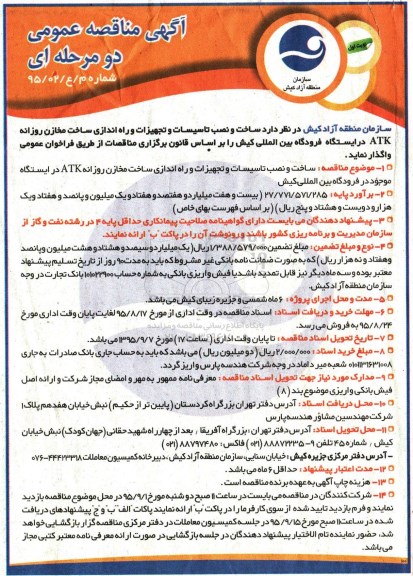 آگهی مناقصه عمومی
دو مرحله ای
شماره م/ع/۹۵/۰۲
سازمان
منطقه آزاد کیش
نوبت اول
سازمان منطقه آزاد کیش در نظر دارد ساخت و نصب تاسیسات و تجهیزات و راه اندازی ساخت مخازن روزانه
ATK در ایستگاه فرودگاه بین المللی کیش را بر اساس قانون برگزاری مناقصات از طریق فراخوان عمومی
واگذار نماید.
۱- موضوع مناقصه : ساخت و نصب تاسیسات و تجهیزات و راه اندازی ساخت مخازن روزانه ATK در ایستگاه
موجود در فرودگاه بین المللی کیش
۲- برآورد پایه: ۲۷/۷۷۱/۵۷۱/۲۸۵ ( بیست و هفت میلیارد و هفتصد و هفتاد و یک میلیون و پانصد و هفتاد و یک
هزار و دویست و هشتاد و پنج ریال ) ( بر اساس فهرست بهای خاص)
۳- پیشنهاد دهندگان می بایست دارای گواهینامه صلاحیت پیمانکاری حداقل پایه ۴ در رشته نفت و گاز از
سازمان مدیریت و برنامه ریزی کشور باشند و رونوشت آن را در پاکت "ب" ارائه نمایند.
۴- نوع و مبلغ تضمین: مبلغ تضمین ۱/۳۸۸/۵۷۹/۰۰۰ ریال ( یک میلیارد و سیصد و هشتاد و هشت میلیون و پانصد
و هفتاد و نه هزار ریال ) که به صورت ضمانت نامه بانکی غیر مشروط که باید به مدت ۹۰ روز از تاریخ تسلیم پیشنهاد
معتبر بوده و سه ماه دیگر نیز قابل تمدید باشد یا فیش واریزی بانکی به شماره حساب بانک تجارت در وجه
سازمان منطقه آزاد کیش.
۵- مدت و محل اجرای پروژه: ۶ ماه شمسی و جزیره زیبای کیش می باشد.
۶- مهلت خرید و دریافت اسناد: اسناد مناقصه در وقت اداری از مورخ ۹۵/۸/۱۷ لغایت پایان وقت اداری مورخ
۹۵/۸/۲۴ به فروش می رسد.
۷- تاریخ تحویل اسناد مناقصه: تا پایان وقت اداری ( ساعت ۱۷) مورخ ۱۳۹۵/۹/۷ می باشد.
۸- مبلغ خرید اسناد: ۲/۰۰۰/۰۰۰ ریال ( دو میلیون ریال ) می باشد که باید به حساب جاری بانک صادرات به جاری
شعبه میر داماد در وجه شرکت هندسه پارس واریز گردد.
۹- مدارک مورد نیاز جهت تحویل اسناد مناقصه : معرفی نامه ممهور به مهر و امضای مجاز شرکت و ارائه اصل
فیش بانکی واریزی موضوع بند (۸)
۱۰- محل دریافت اسناد: آدرس دفتر تهران بزرگراه کردستان ( پایین تر از حکیم) نبش خیابان هفدهم پلاک
شرکت مهندسین مشاور هندسه پارس
۱۱- محل تحویل اسناد: آدرس دفتر تهران: بزرگراه آفریقا ، بعد از چهارراه شهید حقانی (جهان کودک) نبش خیابان
کیش ، شماره ۴۵ تلفن ۹-۸۸۸۷۲۲۳۵ (۰۲۱) فاکس: ۸۸۷۹۷۴۸۰ (۰۲۱)
- آدرس دفتر مرکزی جزیره کیش : خیابان سنایی، سازمان منطقه آزاد کیش، دبیرخانه کمیسیون معاملات
۱۲- مدت اعتبار پیشنهاد : حداقل ۶ ماه می باشد.
۱۳- هزینه چاپ آگهی به عهده برنده مناقصه است.
۱۴- شرکت کنندگان در مناقصه می بایست در ساعت ۱۱ صبح دوشنبه مورخ ۹۵/۹/۱ در محل موضوع مناقصه بازدید
نمایند و فرم بازدید تایید شده از سوی کارفرما را در پاکت "ب" ارائه نمایند پاکات "الف" "ب" و "ج" پیشنهادهای دریافت
شده در ساعت ۱۱ صبح مورخ ۹۵/۹/۱۵ در جلسه کمیسیون معاملات در دفتر مرکزی مناقصه گزار بازگشایی خواهد
شد، حضور نماینده تام الاختیار پیشنهاد دهندگان در جلسه بازگشایی در صورت ارائه معرفی نامه معتبر کتبی مجاز
می باشد.